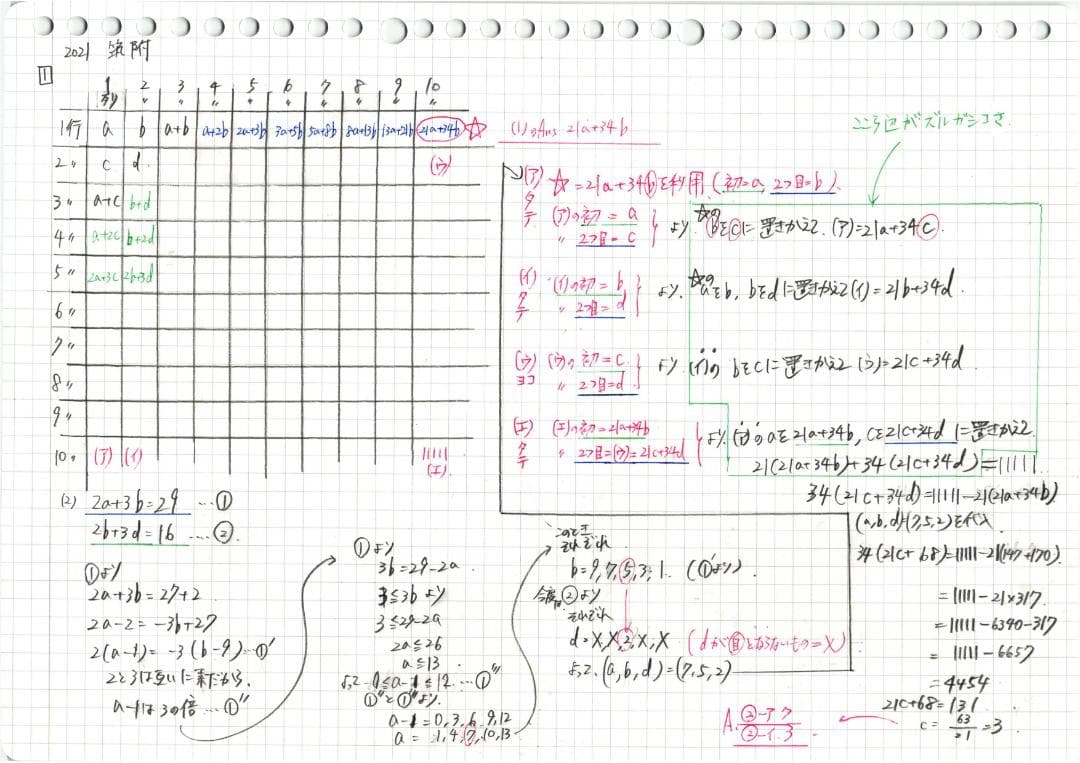 2021 筑附
1
1列 2〃 3〃 4〃 5〃 6〃 7〃 8〃 9〃 10〃
1行 a b a+b a+2b 2a+3b 3a+5b 5a+8b 8a+13b 13a+21b 21a+34b ☆
2〃 c d (ウ)
3〃 a+c b+d
4〃 a+2c b+2d
5〃 2a+3c 2b+3d
6〃
7〃
8〃
9〃
10〃 (ア) (イ) 11111 (エ)
(1) Ans 21a+34b
ここら辺がズルガシコさ
(ア) ☆=21a+34bを利用(初=a, 2つ目=b).
タテ (ア)の初=a
〃 2つ目=c
より ☆のbをcに置きかえて.(ア)=21a+34c.
(イ) タテ (イ)の初=b
〃 2つ目=d
より. ☆のaをb, bをdに置きかえて(イ)=21b+34d.
(ウ) ヨコ (ウ)の初=c
〃 2つ目=d
より (イ)の bをcに置きかえて (ウ)=21c+34d
(エ) タテ (エ)の初=21a+34b
〃 2つ目=(ウ)=21c+34d
より, (ア)のaを21a+34b, cを21c+34dに置きかえて
21(21a+34b)+34(21c+34d)=11111
34(21c+34d)=11111-21(21a+34b)
(a,b,d)=(7,5,2)を代入
34(21c+68)=11111-21(147+170)
=11111-21×317
=11111-6340-317
=11111-6657
=4454
21c+68=131
c=63/21=3
(2) 2a+3b=29 …①
2b+3d=16 …②.
①より
2a+3b=27+2
2a-2=-3b+27
2(a-1)=-3(b-9)…①′
2と3は互いに素だから,
a-1は3の倍…①″
①より
3b=29-2a
3≦3bより
3≦29-2a
2a≦26
a≦13.
よって-0≦a-1≦12…①‴
①″と①‴より.
a-1=0,3,6,9,12
a=1,4,7,10,13
このとき
それぞれ
b=9,7,5,3,1. (①′より)
今度は②より
それぞれ
d=X,X,2,X,X (dが自とならないもの=X)
よって.(a,b,d)=(7,5,2)
A. ③-ア.ウ
②-イ.3